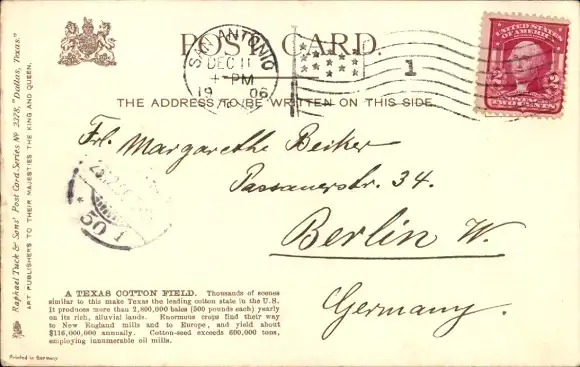 POST CARD.
SAN ANTONIO
DEC 11
4-PM
1906
1
UNITED STATES OF AMERICA
TWO CENTS
THE ADDRESS TO BE WRITTEN ON THIS SIDE.
Frl. Margarethe Becker
Passauerstr. 34.
Berlin W.
Germany.
50
A TEXAS COTTON FIELD. Thousands of scenes
similar to this make Texas the leading cotton state in the U.S.
It produces more than 2,800,000 bales (500 pounds each) yearly
on its rich, alluvial lands. Enormous crops find their way
to New England mills and to Europe, and yield about
$116,000,000 annually. Cotton-seed exceeds 600,000 tons,
employing innumerable oil mills.
Raphael Tuck & Sons' Post Card Series No 3378. "Dallas, Texas."
ART PUBLISHERS TO THEIR MAJESTIES THE KING AND QUEEN.
Printed in Germany